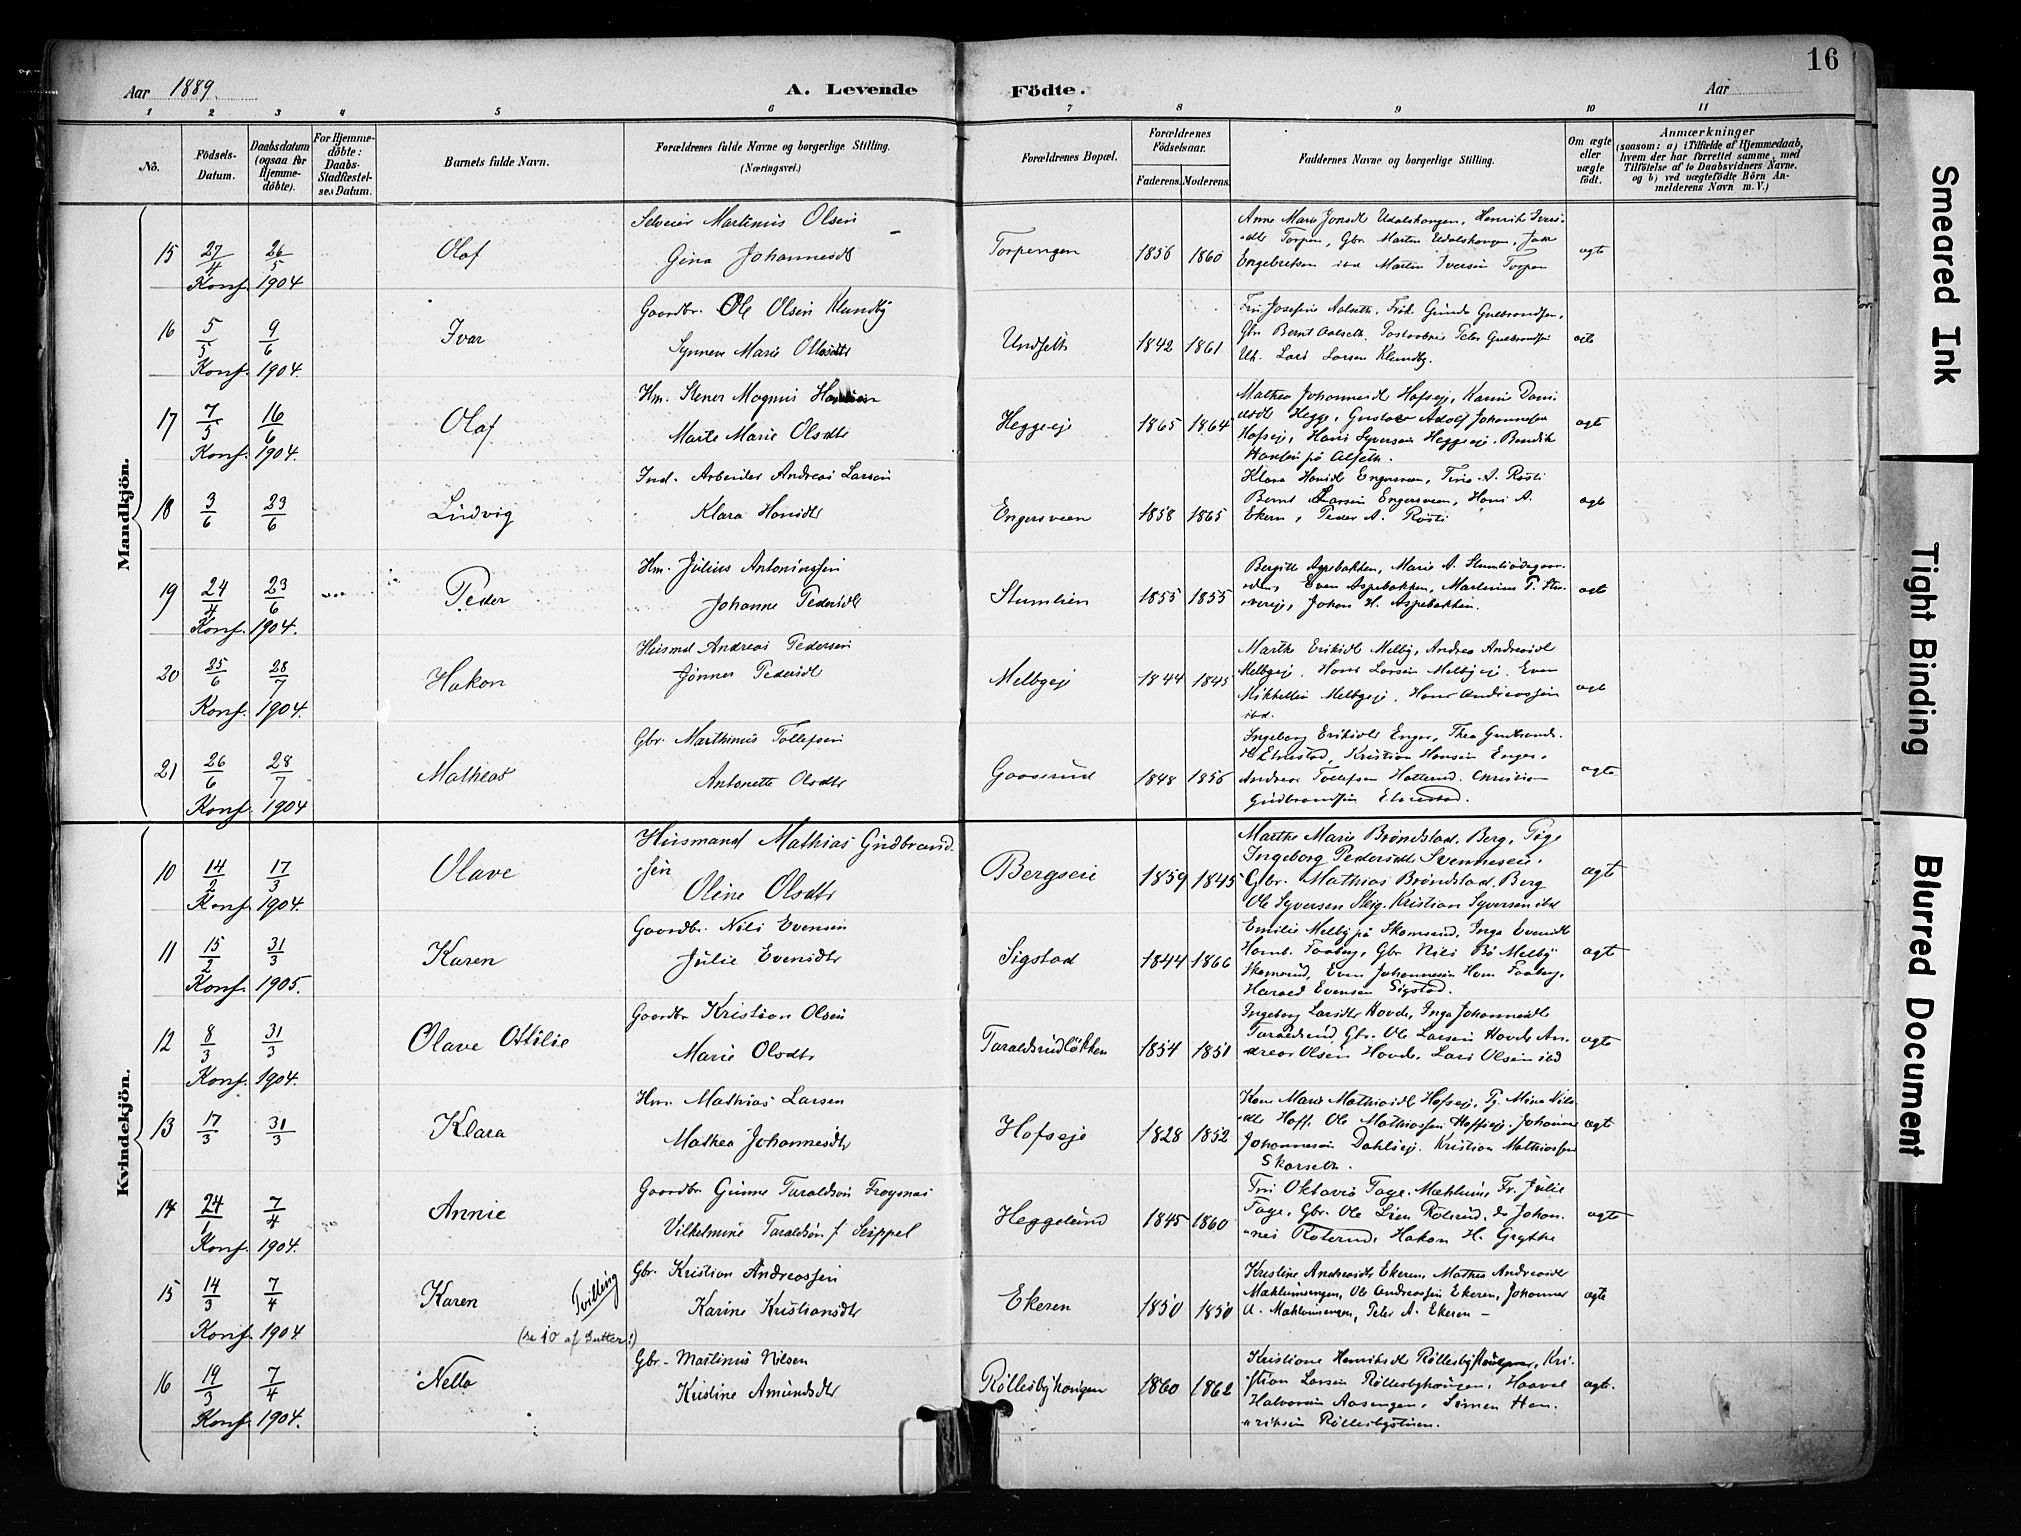 16
Aar 1889. A. Levende Födte. Aar
1 2 3 4 5 6 7 8 9 10 11
No. Födsels-Datum. Daabsdatum (ogsaa for Hjemme-döbte). For Hjemme-döbte: Daabs-Stadfæstel-ses Datum. Barnets fulde Navn. Forældrenes fulde Navne og borgerlige Stilling. (Næringsvei.) Forældrenes Bopæl. Forældrenes Födselsaar. Faderens. Moderens. Faddernes Navne og borgerlige Stilling. Om ægte eller uægte födt. Anmærkninger (saasom: a) i Tilfælde af Hjemmedaab, hvem der har forrettet samme, med Tilföielse af to Daabsvidners Navne. og b) ved uægtefödte Börn Anmelderens Navn m. V.)
Mandkjön.
15 27/4 26/5 Olaf Selveier Martinus Olsen
Gina Johannesdt Torpengen 1856 1860 Anne Marie Jonsdt Udalshongen, Henrik Ivers-
dt Torpen, Gbr. Martin Udalshongen,
Engebretsen ibd Martin Iversen Torpen ægt
Konf. 1904
16 5/5 9/6 Ivar Gaardbr. Ole Olsen Klundby
Synneve Marie Olsdtr Undseth 1842 1861 Fru Josefine Aalseth, Frök. Gunda Gulbrandsen,
Gbr Bernt Aalseth, Postaabner Peter Gulbrandsen
Lars Larsen Klundby. ægt
Konf. 1904.
17 7/5 16/6 Olaf Hm. Stener Magnus Hansen
Marte Marie Olsdtr Heggeeje 1865 1864 Mathea Johannesdt Hofseje, Karen Dani
elsdt Hegge, Gustav Adolf Johannesen
Hofseje, Hans Syversen Heggeeje. Bendik
Hansen på Alseth. ægt
Konf. 1904.
18 3/6 23/6 Ludvig Ind. Arbeider Andreas Larsen
Klara Hansdtr Engersveen 1858 1865 Klara Hansdt Engersveen, Tina A. Røsti
Bernt Larsen Engersveen, Hans A.
Ekern, Peder A. Røsti ægt
19 24/4 23/6 Peder Hm. Julius Antoninssen
Johanne Pedersdt Stumlien 1855 1855 Bergitte Aspebakken, Marie A. Stumliødegaar-
den, Even Aspebakken, Martinius P.
Johan H. Aspebakken. ægt
Konf. 1904.
20 25/6 28/7 Hakon Husmd Andreas Pedersen
Jønner Pedersdt Melbyeje 1844 1845 Marthe Eriksdt Melby, Andrea Andreasdt
Melbyeje, Hans Larsen Melbyeje. Even
Mikkelsen Melbyeje, Hans Andreassen
ibd. ægt
Konf. 1904.
21 26/6 28/7 Mathias Gbr. Marthinus Tollefsen
Antonette Olsdtr Gaaserud 1848 1856 Ingeborg Eriksdt Enger, Thea Gudbrands-
dt Elnestad, Kristian Hansen Enger,
Andreas Tollefsen Hallerud. Christian
Gudbrandsen Elnestad. ægte
Konf. 1904
Kvindekjön.
10 14/2 17/3 Olave Husmand Mathias Gudbrand-
sen
Oline Olsdtr Bergseie 1859 1845 Marthe Marie Brøndstad, Berg, Pige
Ingeborg Pedersdt Svenneseie.
Gbr. Mathias Brøndstad, Berg
Ole Syversen Skig. Kristian Syversen ibd ægt
Konf. 1904.
11 15/2 31/3 Karen Gaardbr. Nils Evensen
Julie Evensdtr Sigstad 1844 1866 Emilie Melby på Skamrud, Inga Evensdt
Hamb. Faaberg, Gbr Nils Bø Melby
Skamrud, Even Johannesen Hom Faaberg,
Harald Evensen Sigstad. ægt
Konf. 1905.
12 8/3 31/3 Olave Ottilie Gaardbr Kristian Olsen
Marie Olsdtr Taraldsrudløkken 1854 1851 Ingeborg Larsdtr Hovde, Inga Johannesdt
Taraldsrud Gbr. Ole Larsen Hovde An-
dreas Olsen Hovde, Lars Olsen ibd ægte
Konf. 1904.
13 17/3 31/3 Klara Hm. Mathias Larsen
Mathea Johannesdtr Hofseje 1828 1852 Kone Marie Mathiasdt Hofseje, Pg. Mina Nils-
dt Hoff, Ole Mathiassen Hoffseje. Johannes
Johannesen Dahlseje. Kristian Mathiassen
Skarseth. ægt
14 24/1 7/4 Annie Gaardbr. Gunne Taraldsön Frøysnæs
Vilhelmine Taraldsön f. Seippel Heggelund 1845 1860 Fru Oktavia Tage, Mæhlum, Fr. Julie
Tage, Gbr. Ole Lien Roterud, do Johan-
nes Roterud, Hakon H. Grythe ægte
Konf. 1904.
15 14/3 7/4 Karen Tvilling
(se 10 af Gutter:) Gbr. Kristian Andreassen
Karine Kristiansdtr Ekeren 1850 1850 Kristine Andreasdt Ekeren, Mathea Andreasdtr
Mæhlumsengen, Ole Andreassen Ekeren, Johannes
A. Mæhlumsengen, Peter A. Ekeren - ægte
Konf. 1904.
16 19/3 7/4 Nella Gbr. Martinus Nilsen
Kristine Amundsdtr Røllesbyhaugen 1860 1862 Kristiane Henriksdt Røllesbyhaugen, Kri-
stian Larsen Røllesbyhaugen, Haavel
Halvorsen Aasengen, Simen Hen-
riksen Røllesbystuen. ægte.
Konf. 1904.
Smeared Ink
Tight Binding
Blurred Document